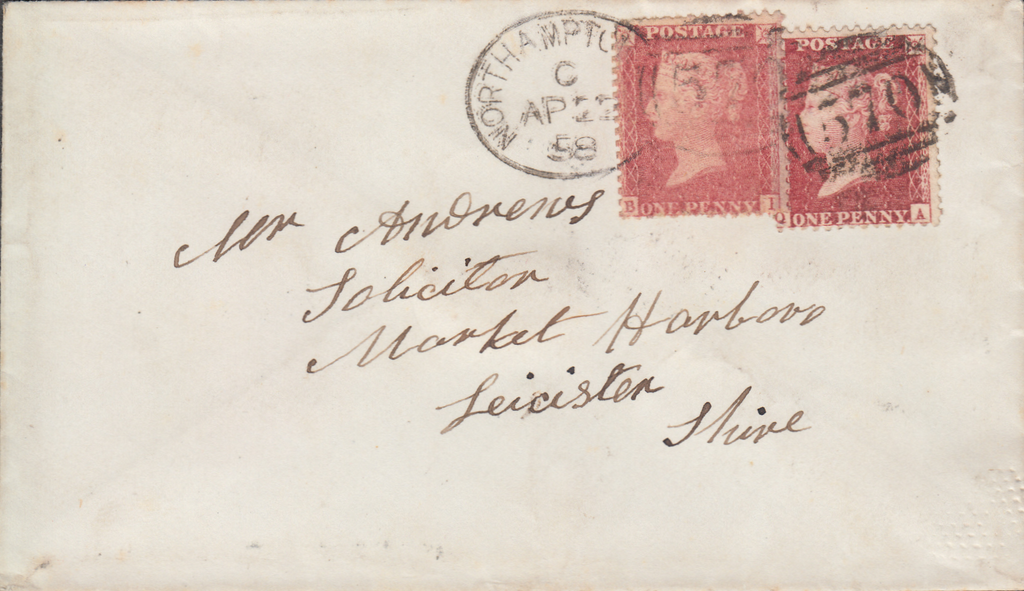 NORTHAMPTON
C
AP 22
58
POSTAGE
B ONE PENNY I
570
POSTAGE
Q ONE PENNY A
Mr Andrews
Solicitor
Market Harboro
Leicister
Shire